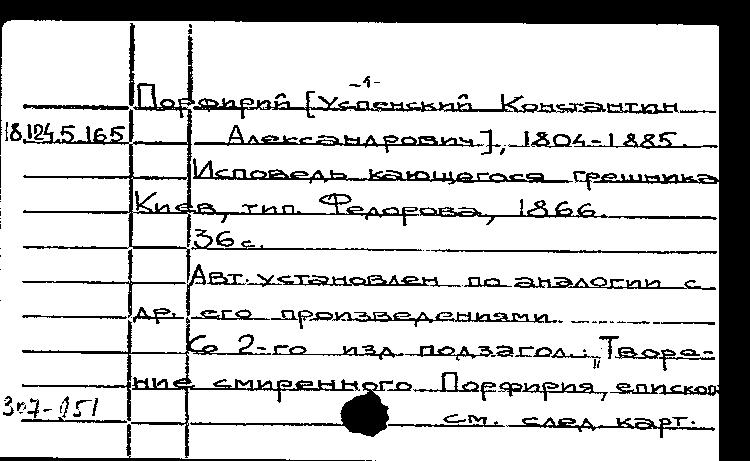 -1-
Порфирий [Успенский Константин
18.124.5.165 Александрович], 1804-1885.
Исповедь кающегося грешника
Киев, тип. Федорова, 1866.
36 с.
Авт. установлен по аналогии с
др. его произведениями
Со 2-го изд. подзагол.: „Творе-
ние смиренного Порфирия, епископ
см. след. карт.